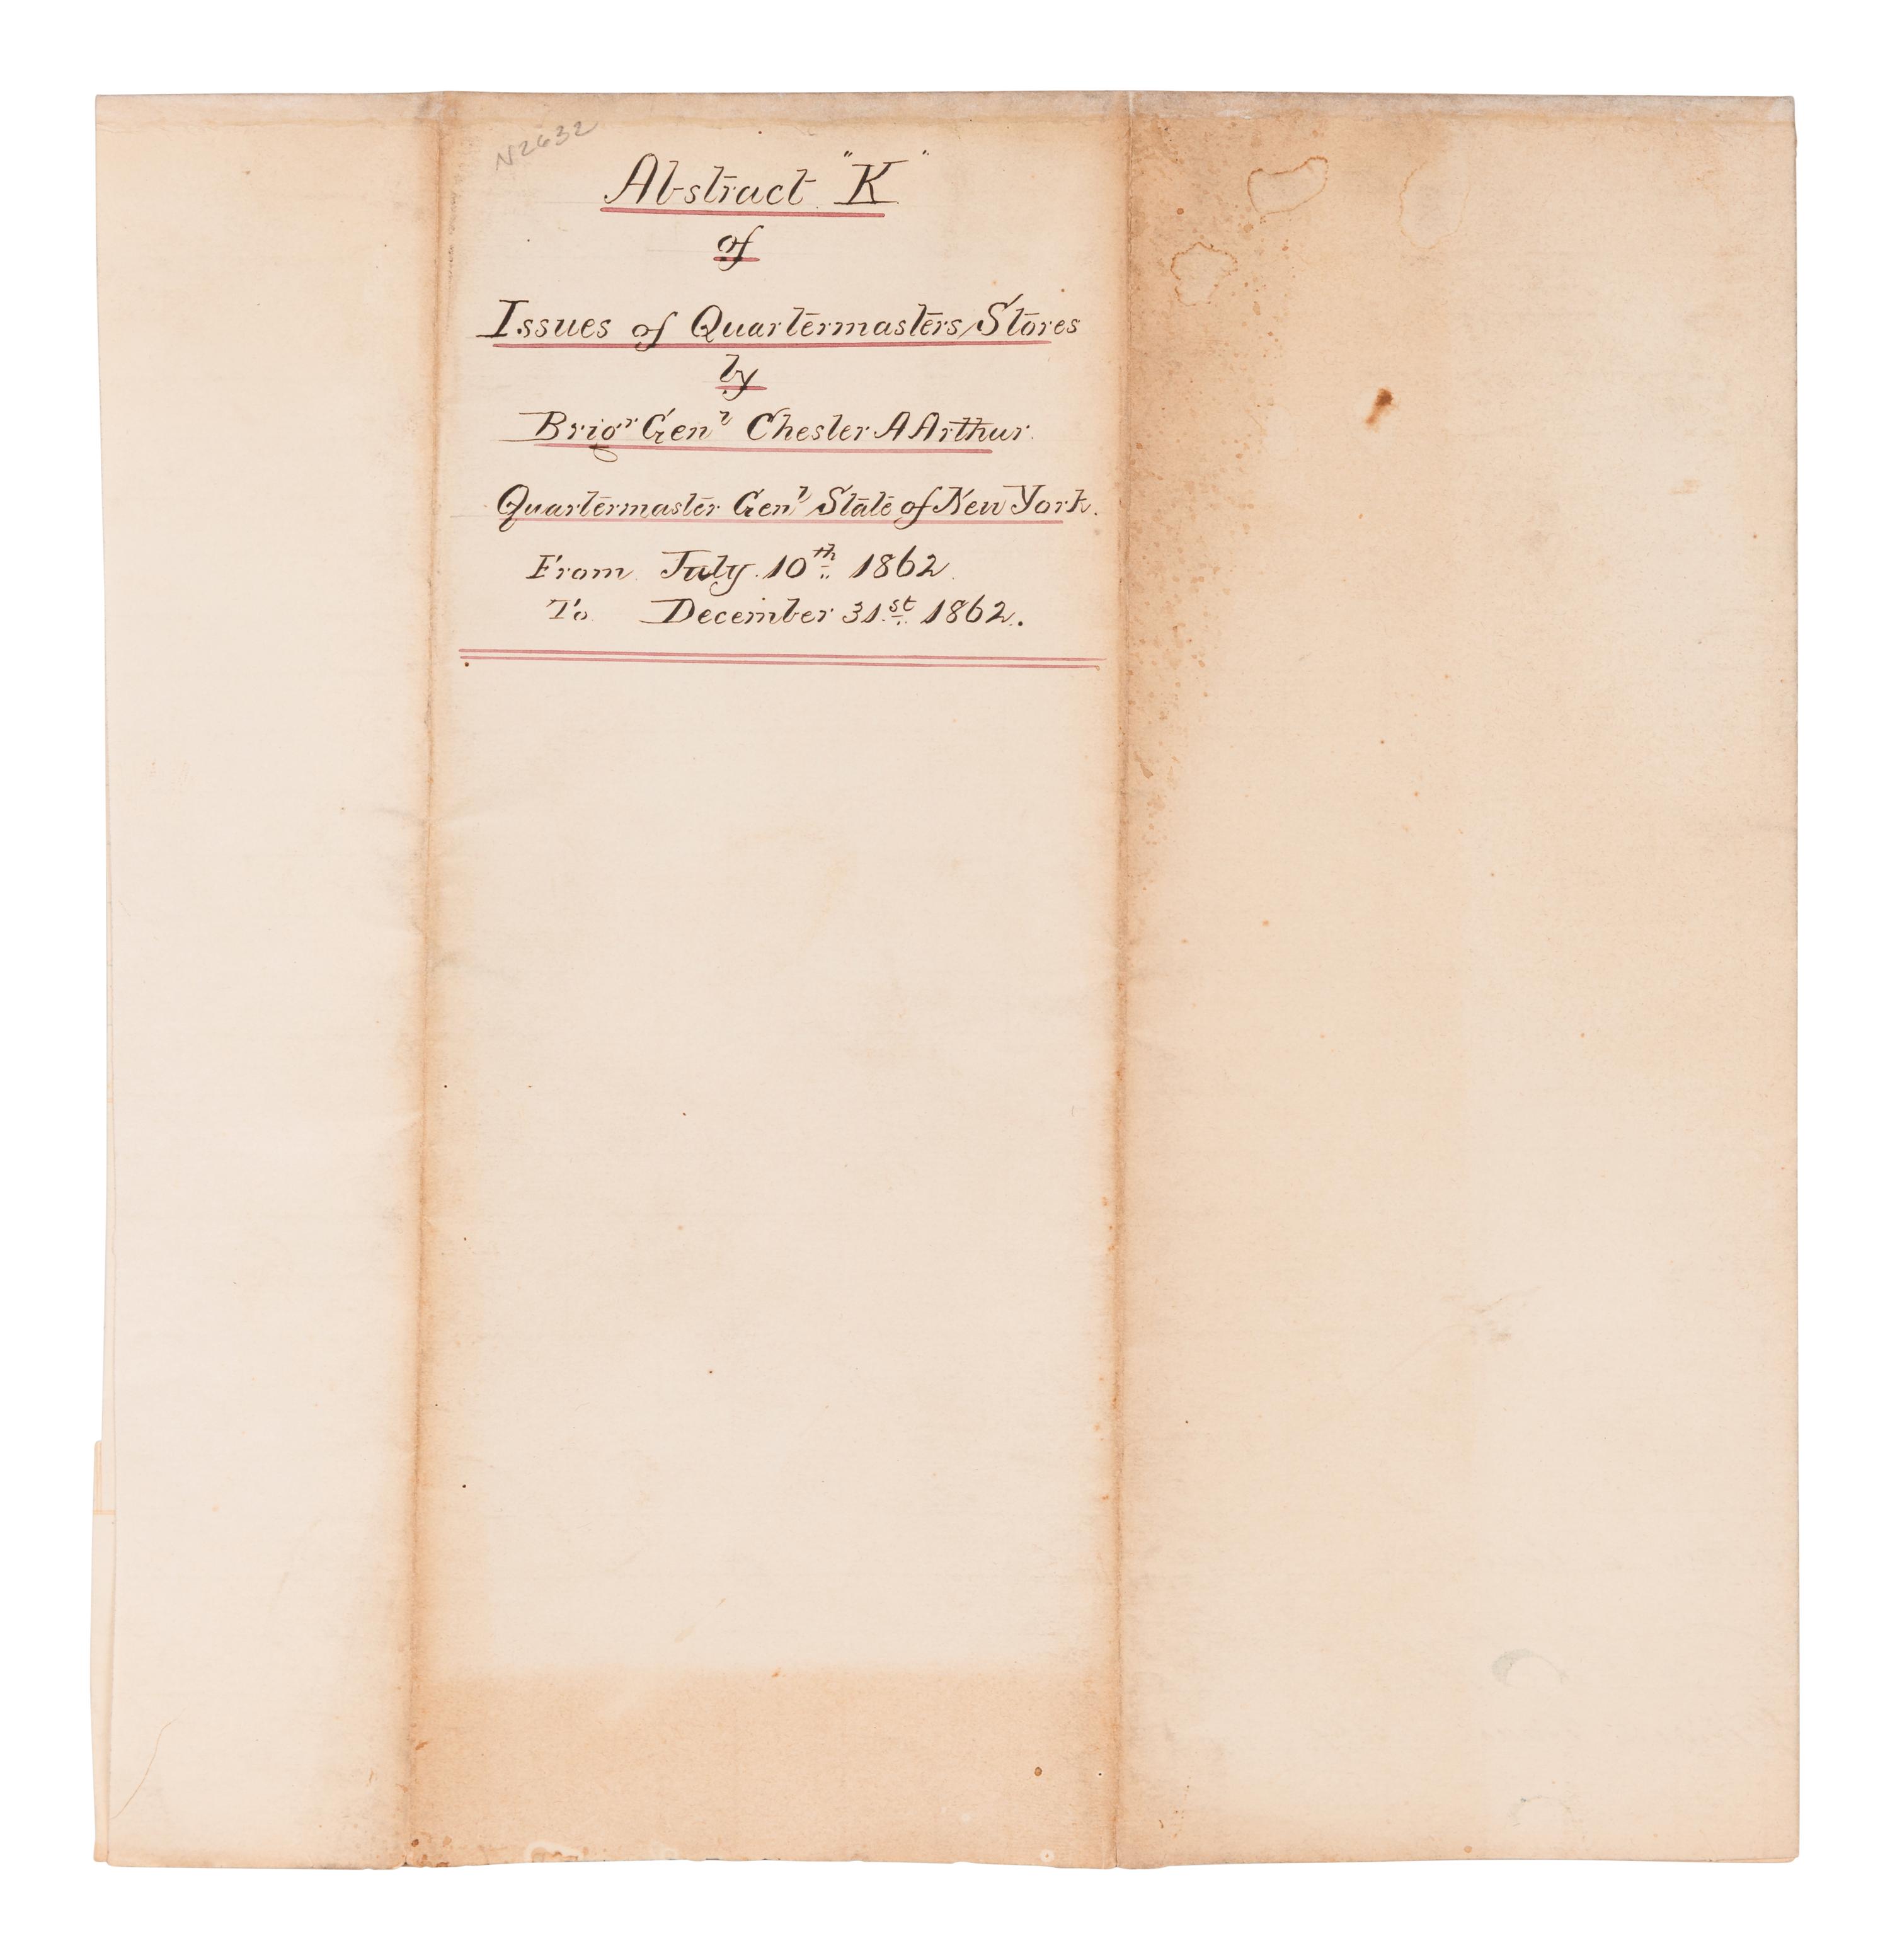 N2632
Abstract "K"
of
Issues of Quartermasters Stores
by
Brigr Genl Chester A Arthur.
Quartermaster Genl State of New York.
From July 10th 1862
To December 31st 1862.